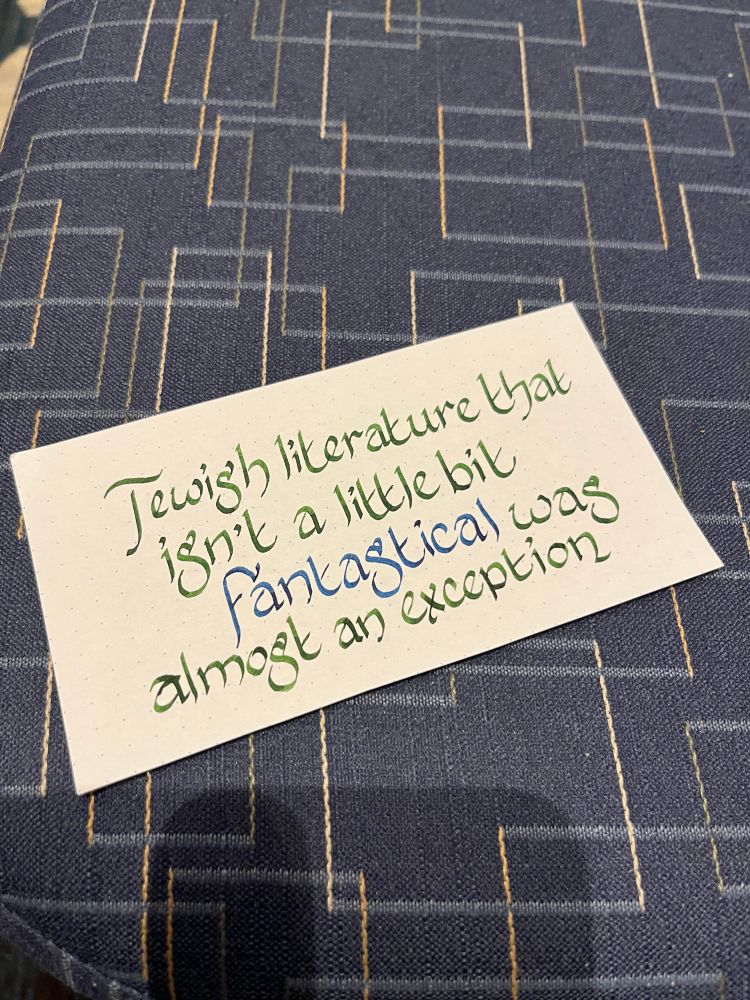 Jewish literature that
isn't a little bit
fantastical was
almost an exception